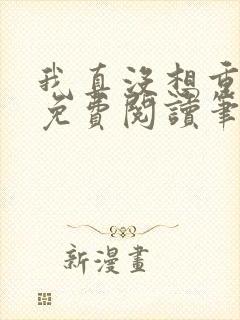 我真没想重
免費閱讀筆
新漫畫